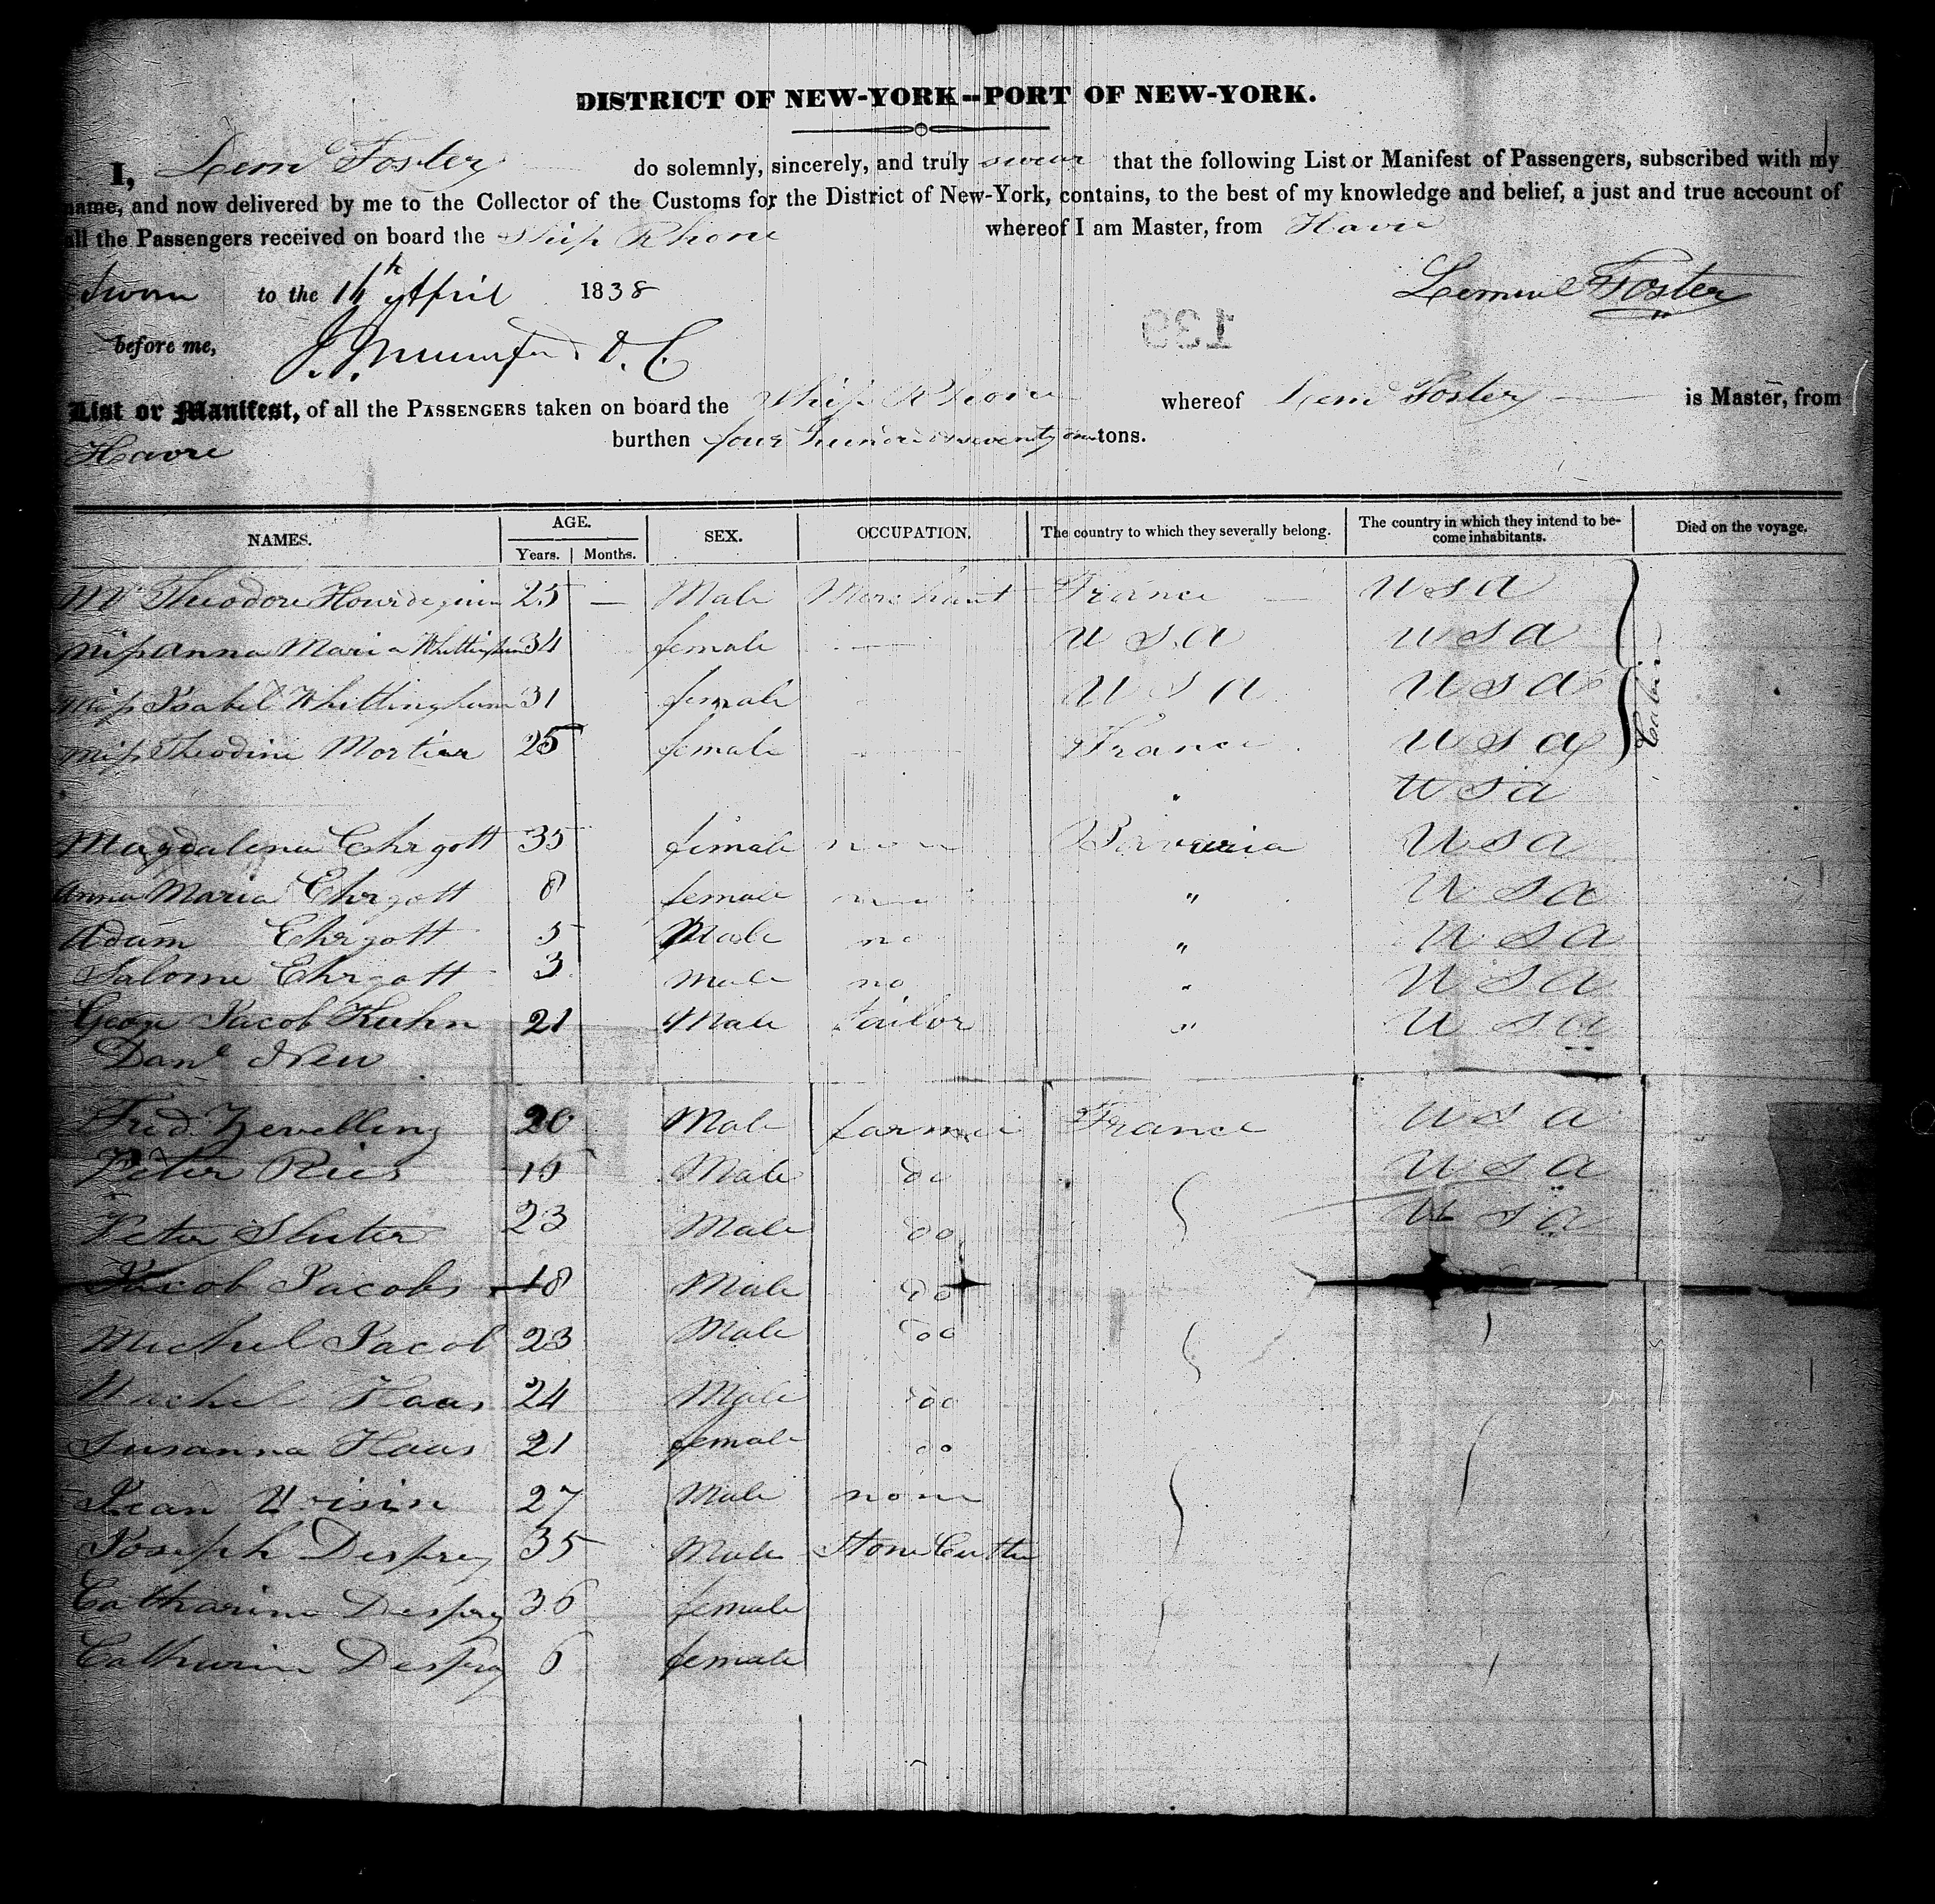 DISTRICT OF NEW-YORK--PORT OF NEW-YORK.
I, Lem Foster do solemnly, sincerely, and truly swear that the following List or Manifest of Passengers, subscribed with my
name, and now delivered by me to the Collector of the Customs for the District of New-York, contains, to the best of my knowledge and belief, a just and true account of
all the Passengers received on board the Ship Rhone whereof I am Master, from Havre
Sworn to the April 1838 Lemuel Foster
before me, D. C.
139
List or Manifest, of all the PASSENGERS taken on board the Ship Rhone whereof Lem Foster is Master, from
Havre burthen four hundred seventy one tons.
NAMES. AGE. SEX. OCCUPATION. The country to which they severally belong. The country in which they intend to be- Died on the voyage.
Years. Months. come inhabitants.
Mr Theodore 25 — Male Merchant France — U S A
Miss Anna Maria Whittingham 34 female U S A U S A
Miss Isabel Whittingham 31 female U S A U S A
Cabin
Miss Theodine Mortier 25 female France U S A
" U S A
Magdalena Ehrgott 35 female none Bavaria U S A
Anna Maria Ehrgott 8 female " U S A
Adam Ehrgott 5 Male no " U S A
Salome Ehrgott 3 male no " U S A
George Jacob Kuhn 21 Male Tailor " U S A
Danl New
Fred. Zevelling 20 Male farmer France U S A
Peter Ries Male do U S A
Peter 23 Male do U S A
Jacob Jacobs 18 Male do
Michel Jacob 23 Male do
Haas 24 Male do
Susanna Haas 21 female do
Jean 27 Male none
Joseph Desprey 35 Male Stone Cutter
Catharine Desprey 36 female
Catharine Desprey 6 female